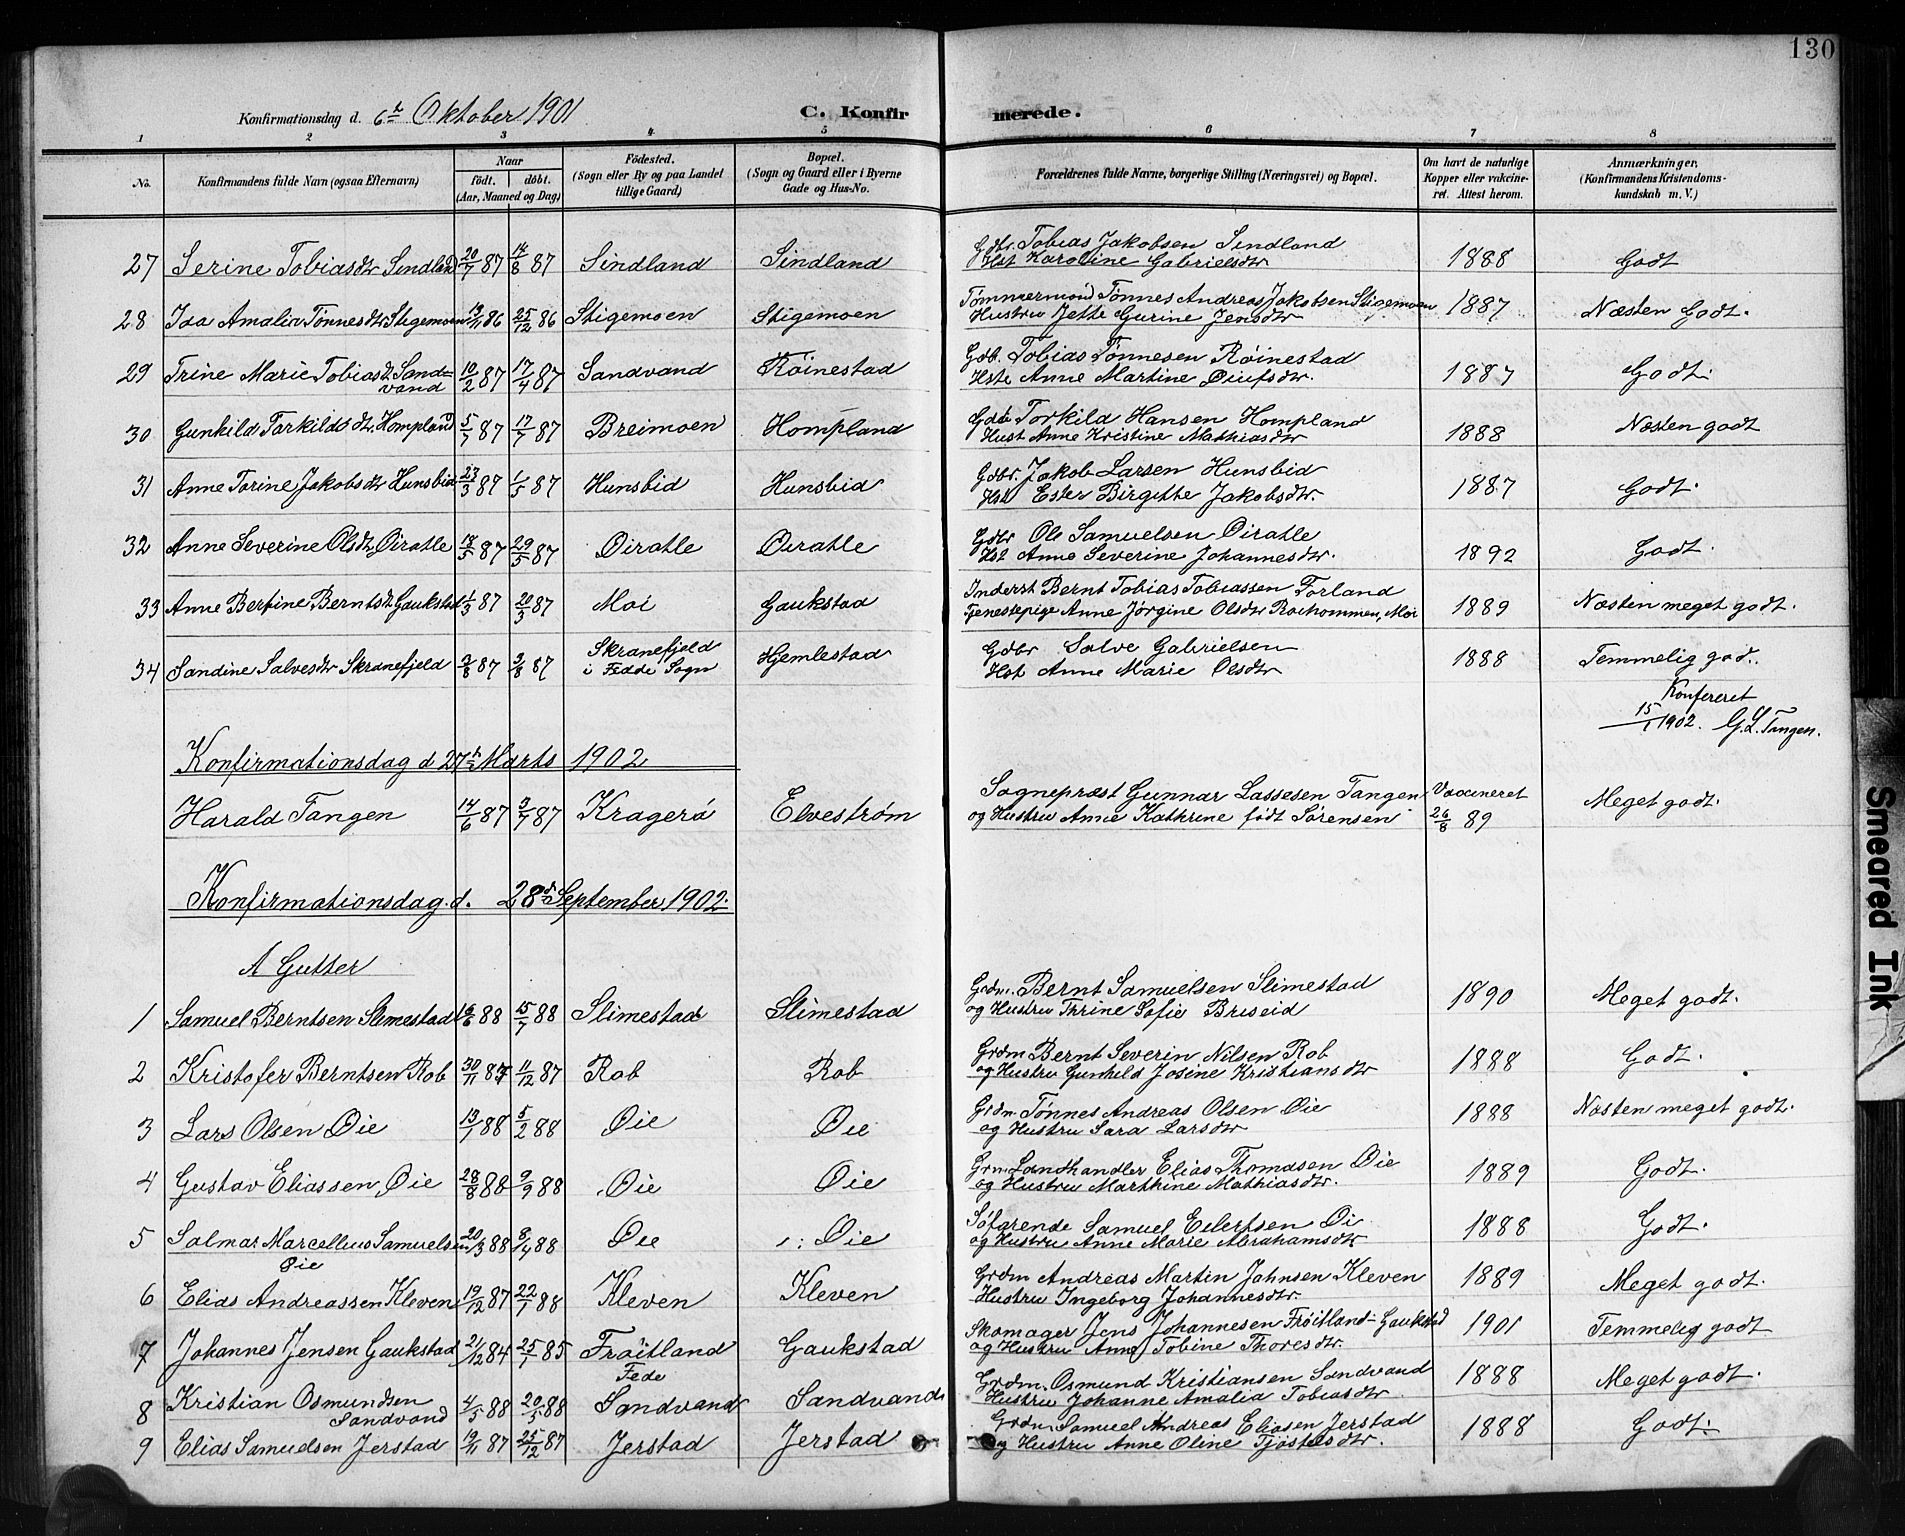 130
Konfirmationsdag d. 6te Oktober 1901
C. Konfirmerede.
1 2 3 4 5 6 7 8
No.
Konfirmandens fulde Navn (ogsaa Efternavn)
Naar
födt. döbt.
(Aar, Maaned og Dag)
Födested.
(Sogn eller By og paa Landet
tillige Gaard)
Bopæl.
(Sogn og Gaard eller i Byerne
Gade og Hus-No.
Forældrenes fulde Navne, borgerlige Stilling (Næringsvei) og Bopæl.
Om havt de naturlige
Kopper eller vakcine-
ret. Attest herom.
Anmærkninger.
(Konfirmandens Kristendoms-
kundskab m. V.)
27 Serine Tobiasdtr Sindland 20/7 87 14/8 87 Sindland Sindland Gdbr. Tobias Jakobsen Sindland 1888 Godt
Hst Karoline Gabrielsdtr
28 Ida Amalia Tønnesdtr Stigemoen 19/11 86 25/12 86 Stigemoen Stigemoen Tømmermand Tønnes Andreas Jakobsen Stigemoen 1887 Næsten Godt.
Hustru Jette Gurine Jensdtr
29 Trine Marie Tobiasdt. Sand- 10/2 87 17/4 87 Sandvand Röinestad Gdb. Tobias Tönnesen Röinestad 1887 Godt.
vand Hste Anne Martine
30 Gunhild Torkildsdt. Hompland 5/7 87 17/7 87 Breimoen Hompland Gdb Torkild Hansen Hompland 1888 Næsten godt
Hust Anne Kristine Mathiasdtr
31 Anne Torine Jakobsdtr Hunsbid 23/3 87 1/5 87 Hunsbid Hunsbid Gdbr. Jakob Larsen Hunsbid 1887 Godt.
Hst Ester Birgitte Jakobsdtr.
32 Anne Severine Olsdt. Øiratle 18/5 87 29/5 87 Øiratle Øiratle Gdbr Ole Samuelsen Øiratle 1892 Godt.
Hst Anne Severine Johannesdtr.
33 Anne Bertine Berntsdt. Gaukstad 1/3 87 20/3 87 Moi Gaukstad Inderst Bernt Tobias Tobiassen Forland 1889 Næsten meget godt.
Tjenestepige Anne Jørgine Olsdtr Moi
34 Sandine Salvesdtr Skranefjeld 2/8 87 3/8 87 Skranefjeld Hjemlestad Gdbr Salve Gabrielsen 1888 Temmelig god..
i Fedde Sogn Hst Anne Marie Olsdtr
Konfereret
15/1 1902. G. L. Tangen.
Konfirmationsdag d 27de Marts 1902
Harald Tangen 14/6 87 3/7 87 Kragerø Elvestrøm Sognepræst Gunnar Lassesen Tangen Vaccineret Meget godt.
og Hustru Anne Kathrine født Sørensen 26/8 89
Konfirmationsdag d. 28de September 1902.
A Gutter
1 Samuel Berntsen Slimestad 19/6 88 15/7 88 Slimestad Slimestad Grdm. Bernt Samuelsen Slimestad 1890 Meget godt.
og Hustru Thrine Sofie Briseid
2 Kristofer Berntsen Rob 30/11 87 11/12 87 Rob Rob Grdm Bernt Severin Nilsen Rob 1888 Godt.
og Hustru Gunhild Josine Kristiansdtr
3 Lars Olsen Øie 13/1 88 5/2 88 Øie Øie Grdm. Tønnes Andreas Olsen Øie 1888 Næsten meget godt.
og Hustru Sara Larsdtr
4 Gustav Eliassen Øie 28/8 88 9/9 88 Øie Øie Grm. Landhandler Elias Thomasen Øie 1889 Godt.
og Hustru Marthine Mathiasdtr.
5 Salmar Marcellius Samuelsen 20/3 88 8/4 88 Øie Øie Søfarende Samuel Eilertsen Øi 1888 Godt.
Øie og Hustru Anne Marie Abrahamsdtr
6 Elias Andreassen Kleven 19/12 87 22/1 88 Kleven Kleven Grdm Andreas Martin Jahnsen Kleven 1889 Meget godt.
Hustru Ingeborg Johannesdtr.
7 Johannes Jensen Gaukstad 21/12 84 25/1 85 Frøitland Gaukstad Skomager Jens Johannesen Frøitland-Gaukstad 1901 Temmelig godt
Fede og Hustru Anne Tobine Thoresdtr.
8 Kristian Osmundsen 4/5 88 20/5 88 Sandvand Sandvand Grdm. Osmund Kristiansen Sandvand 1888 Meget godt.
Sandvand Hustru Johanne Amalia Tobiasdtr
9 Elias Samuelsen Jerstad 19/11 87 25/12 87 Jerstad Jerstad Grdm. Samuel Andreas Eliasen Jerstad 1888 Godt.
og Hustru Anne Oline Tjöstelsdtr.
Smeared Ink